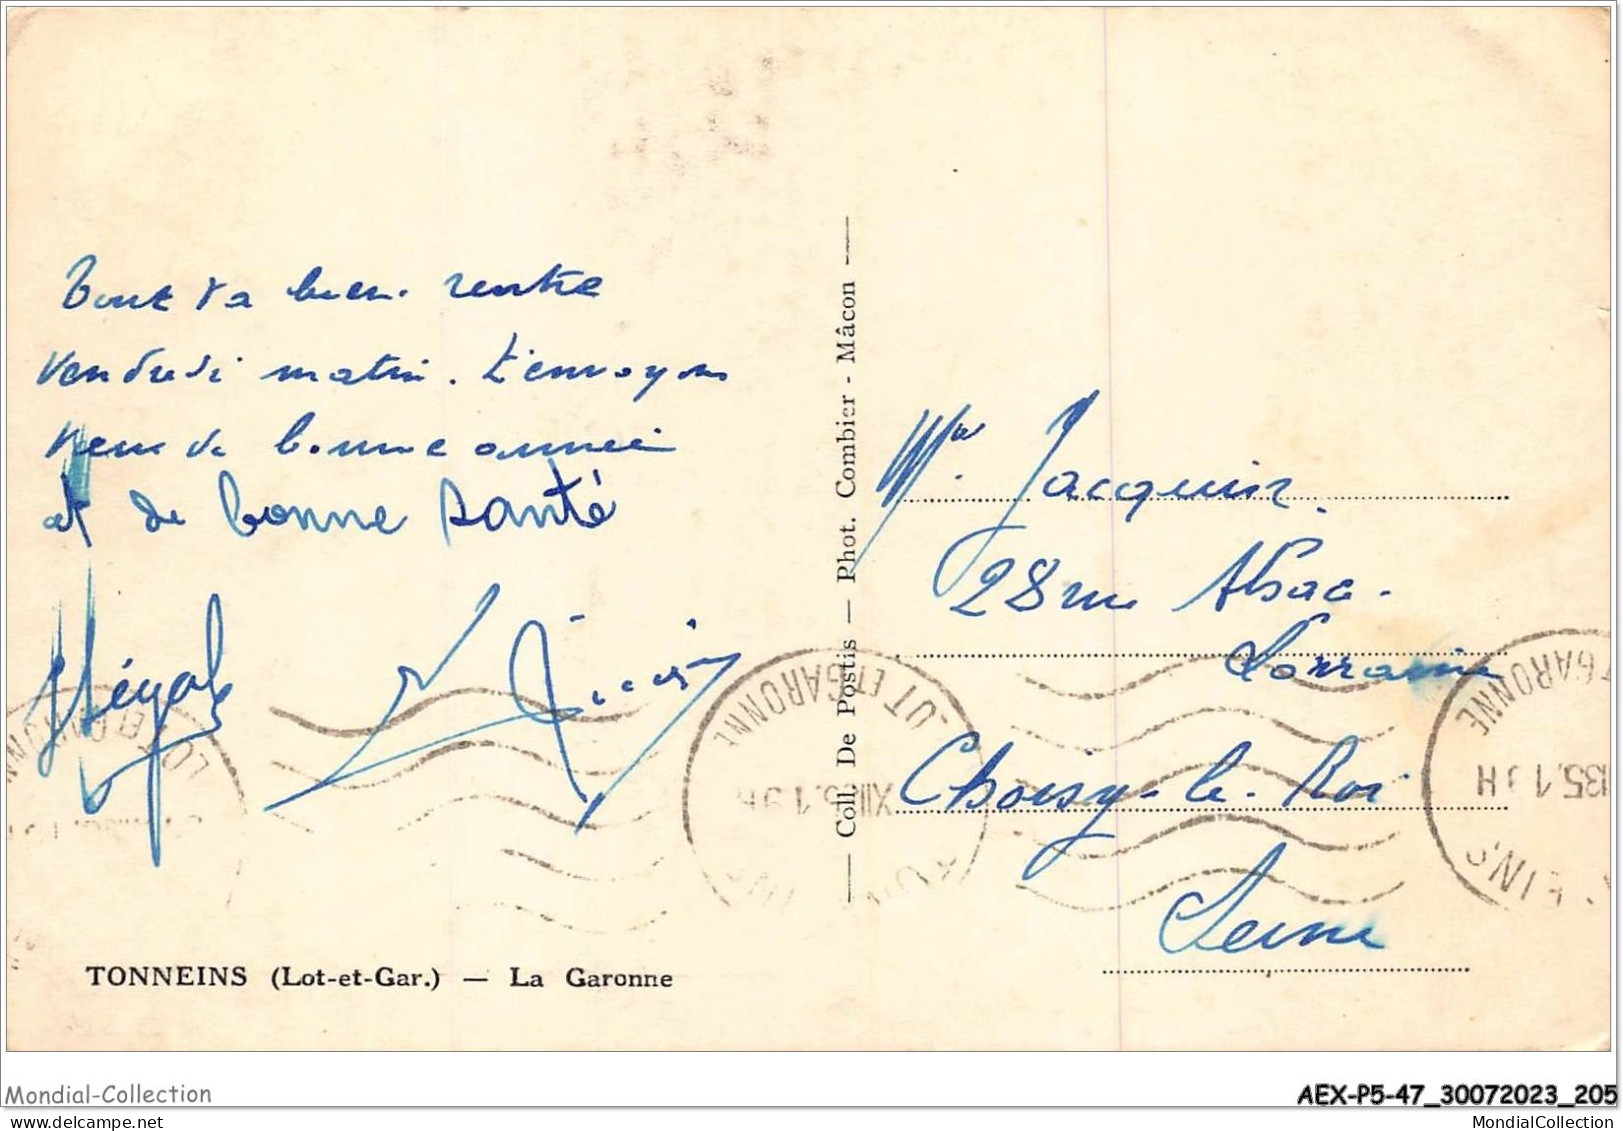 Tout va bien. rentre
vendredi matin. t'envoyons
vœux de bonne année
et de bonne santé
Coll. De Postis — Phot. Combier - Mâcon
Jacquin.
28 rue Alsace.
Lorraine
Choisy-le-Roi
Seine
LOT ET GARONNE
LOT ET GARONNE
TONNEINS (Lot-et-Gar.) — La Garonne
Mondial-Collection
AEX-P5-47_30072023_205
MondialCollection
MondialCollection